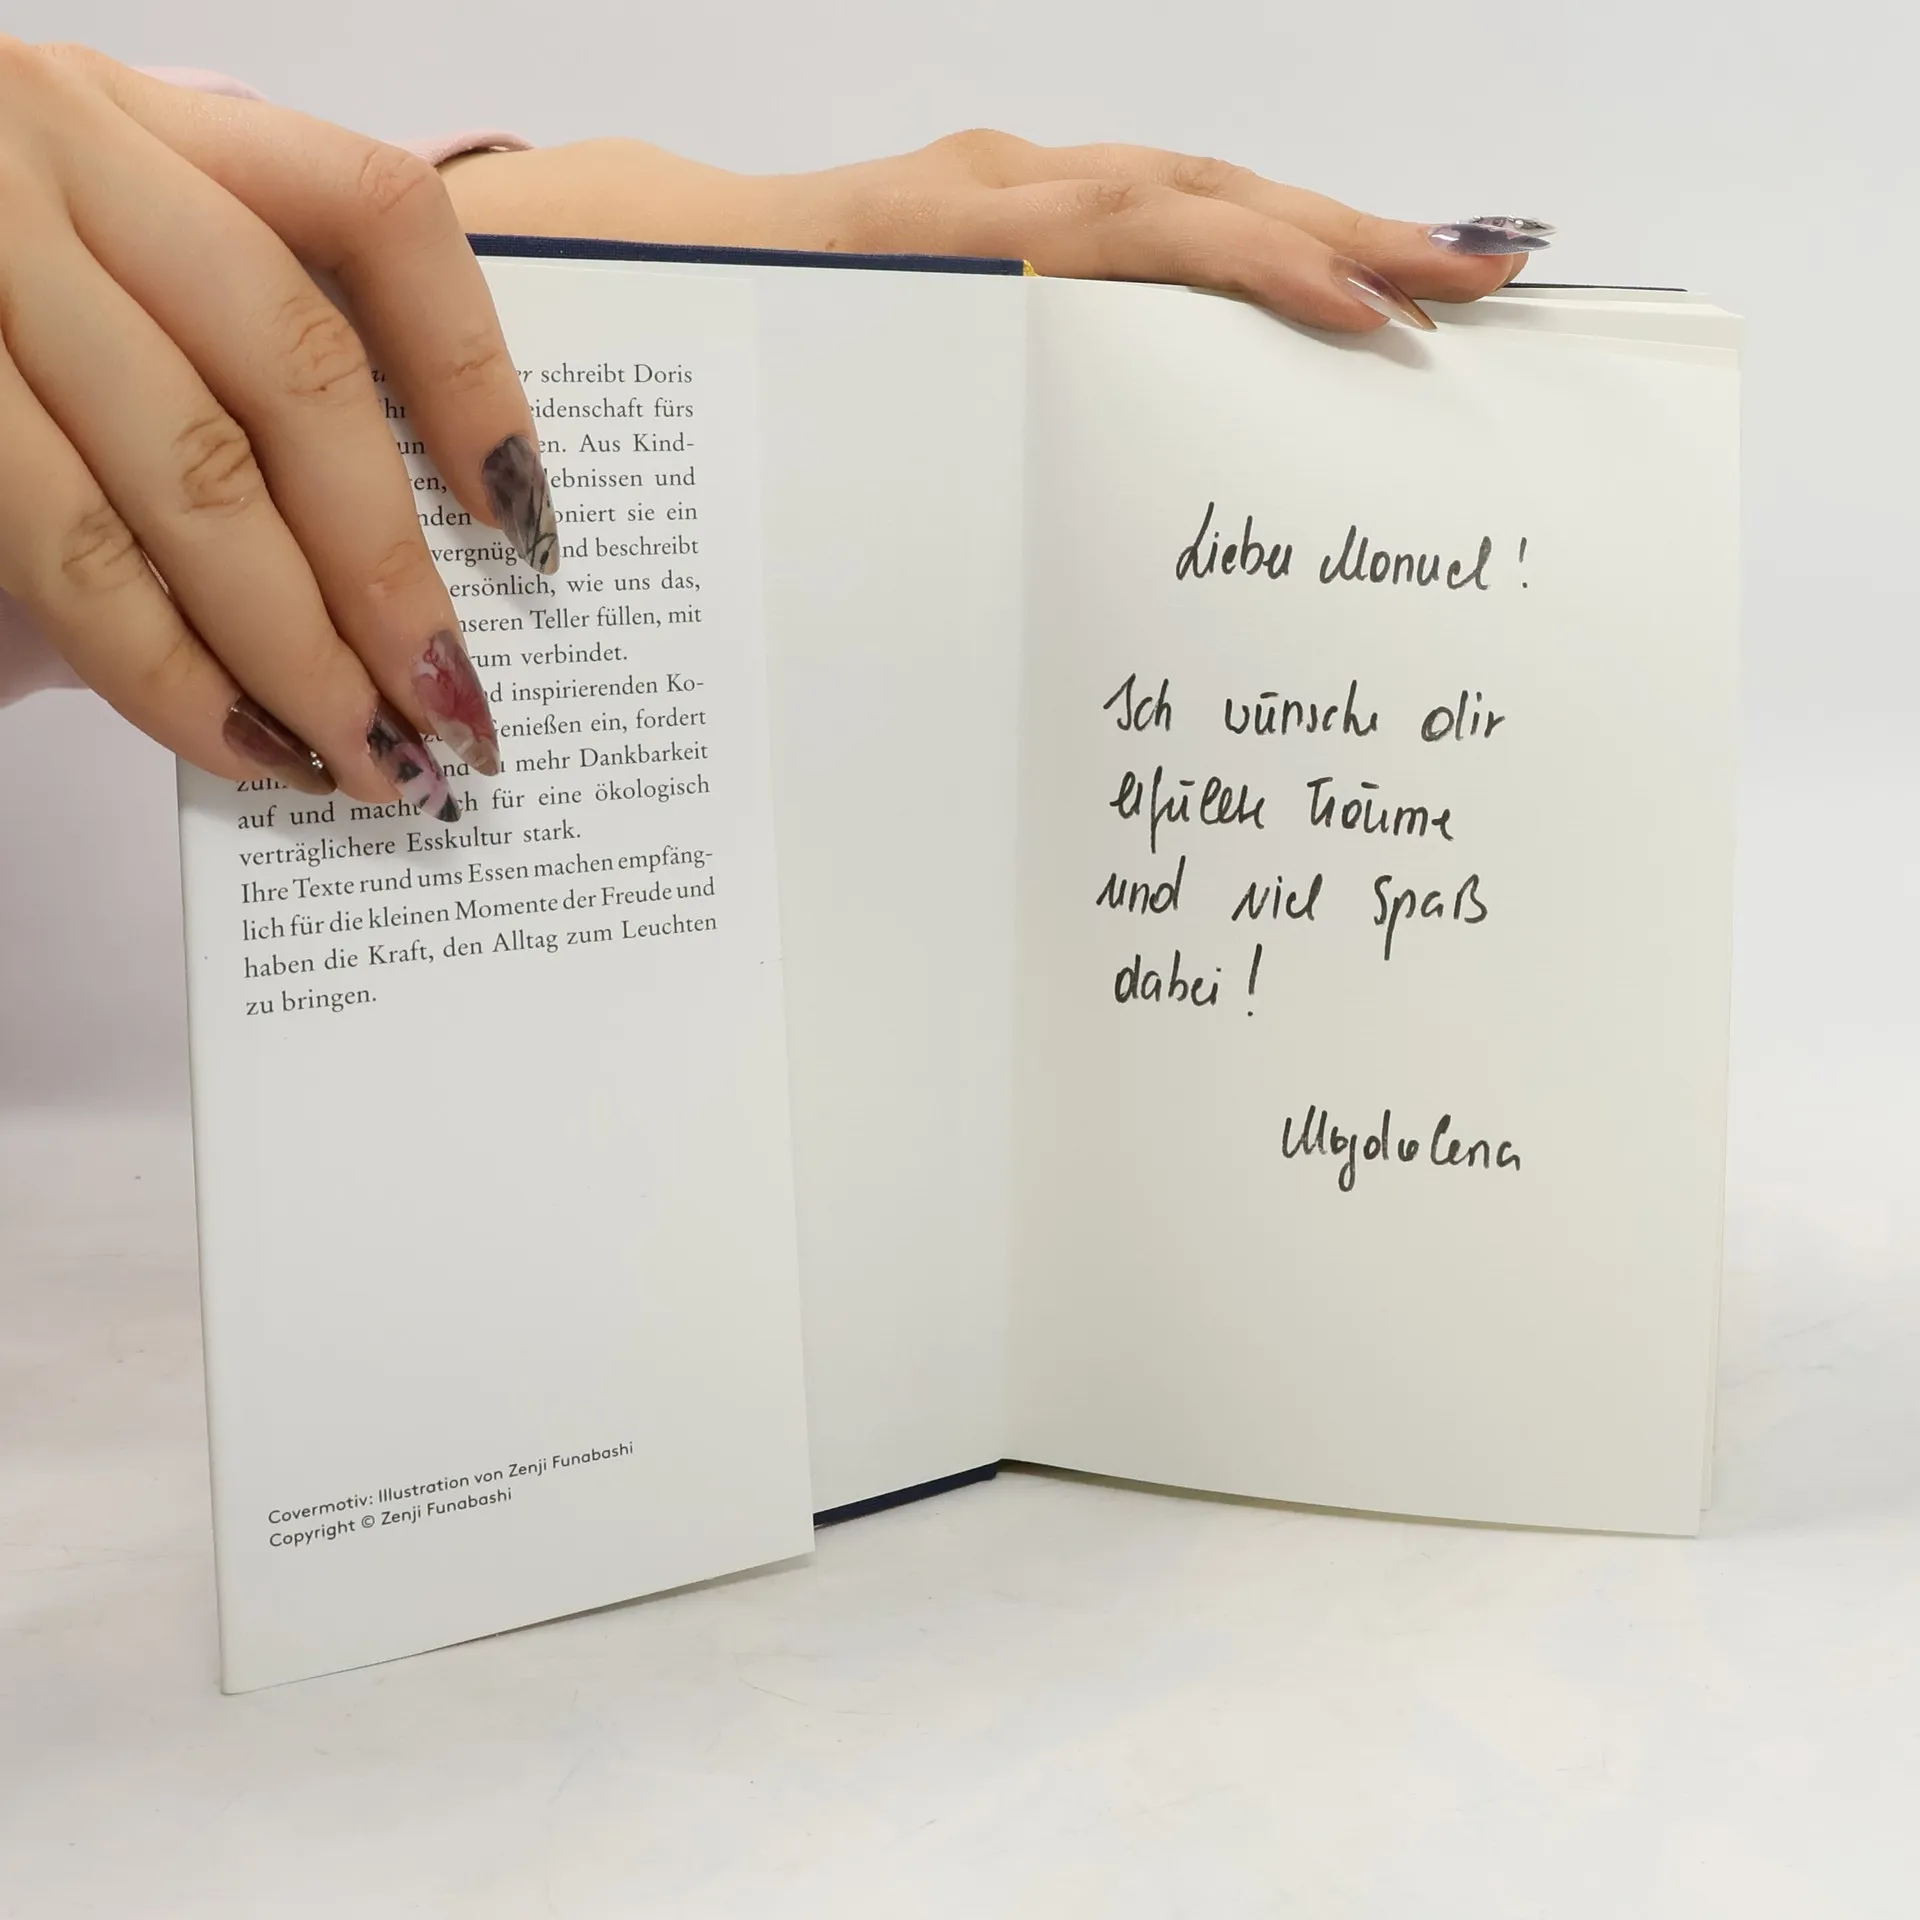 er schreibt Doris
idenschaft fürs
en. Aus Kind-
en, ebnissen und
nden oniert sie ein
vergnüg nd beschreibt
ersönlich, wie uns das,
nseren Teller füllen, mit
rum verbindet.
d inspirierenden Ko-
enießen ein, fordert
mehr Dankbarkeit
auf und macht ch für eine ökologisch
verträglichere Esskultur stark.
Ihre Texte rund ums Essen machen empfäng-
lich für die kleinen Momente der Freude und
haben die Kraft, den Alltag zum Leuchten
zu bringen.
Covermotiv: Illustration von Zenji Funabashi
Copyright © Zenji Funabashi
Lieber Manuel!
Ich wünsche dir
erfüllte Träume
und viel Spaß
dabei!
Magdalena